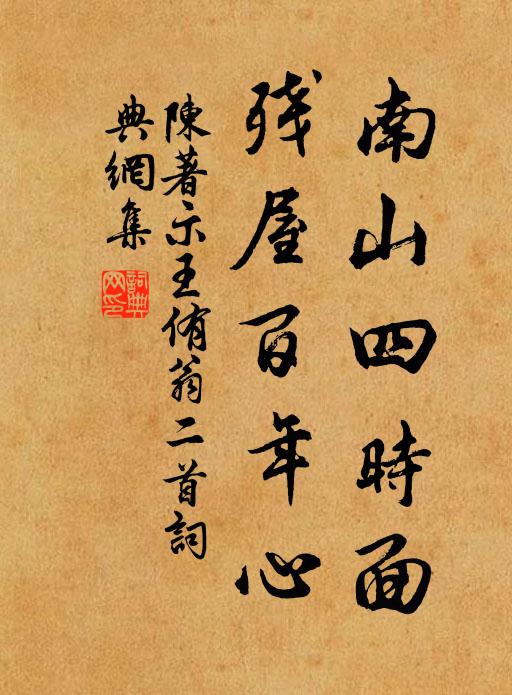 南山四時面
殘屋百年心
陳著示王侑翁二首詞
典網集
詞典
网印